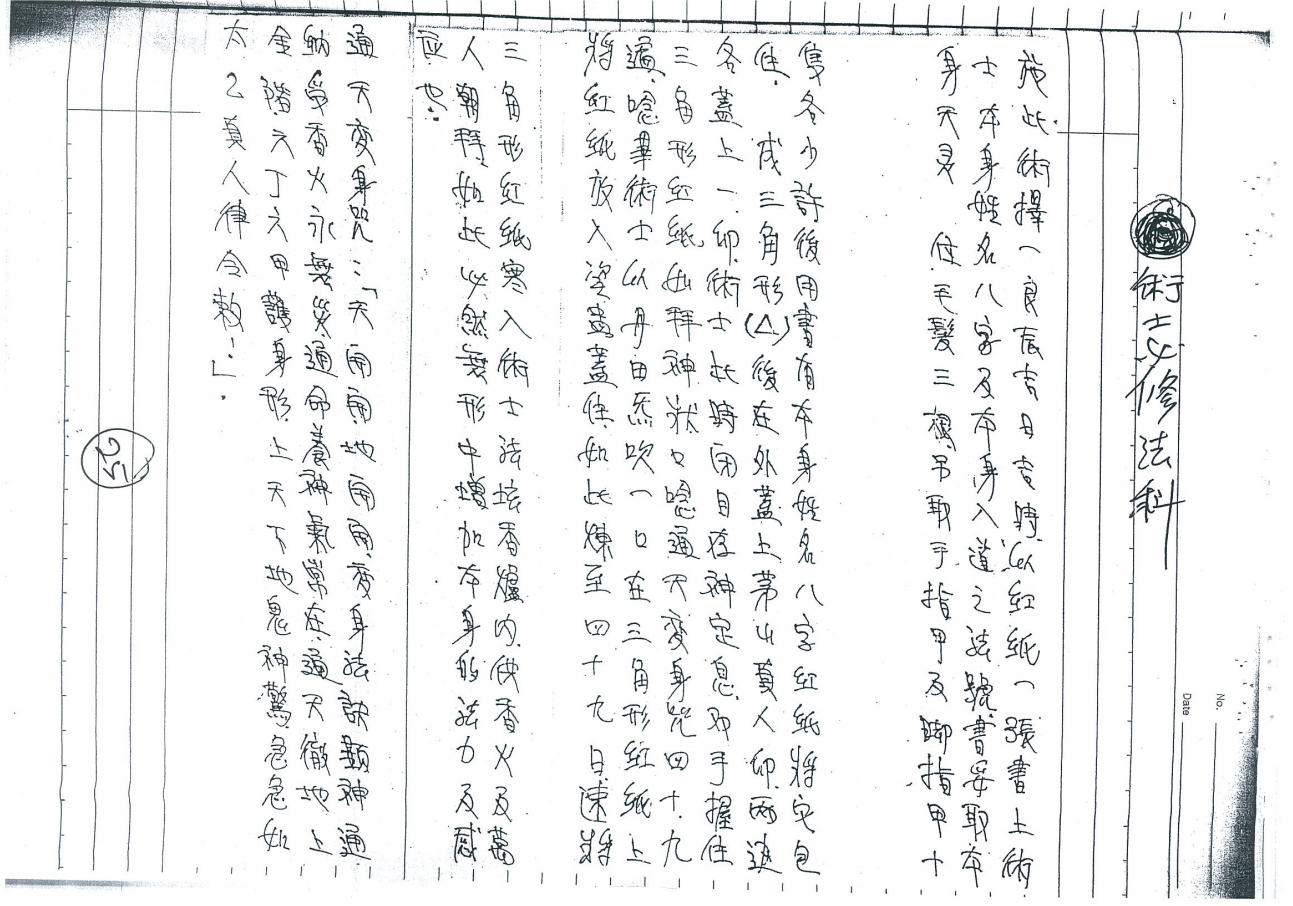 術士必修法科
No.
Date
施此術擇一良辰吉日吉時,以紅紙一張書上術
士本身姓名八字及本身入道之法號,書妥取本
身天靈 位毛髮三 另取手指甲及脚指甲十
隻各少許後用書有本身姓名八字紅紙將它包
住. 成三角形(△)後在外蓋上茅山真人印,兩邊
各蓋上一印,術士此時閉目存神定息,双手握住
三角形紅紙如拜神狀口唸通天變身咒四十九
遍,唸畢術士以丹田炁吹一口在三角形紅紙上
將紅紙放入瓷盅蓋住如此煉至四十九日,速將
三角形紅紙塞入術士法坛香爐內,供香火及萬
人朝拜,如此必然無形中增加本身的法力及感
应也.
通天變身咒:「天開開,地開開,變身法訣顯神通
納受香火永無災,通命養神氣常在,通天徹地上
金階,六丁六甲護身形,上天下地鬼神驚,急急如
太乙真人律令敕!」.
25